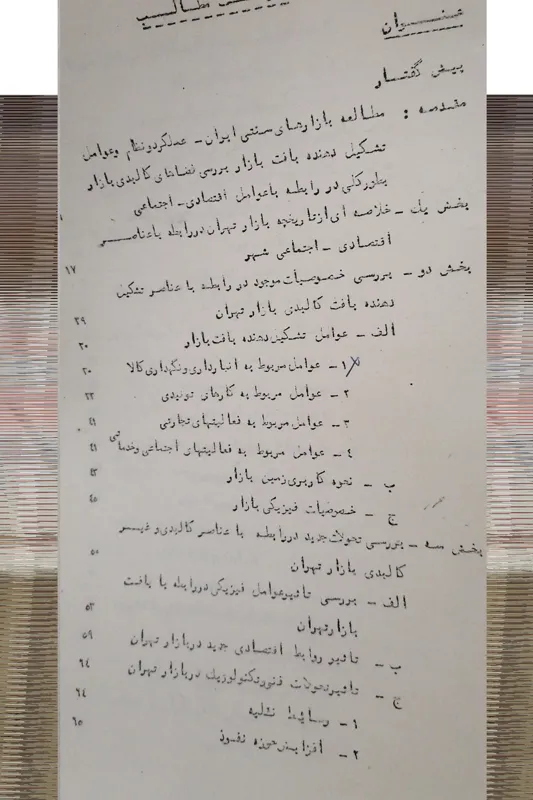 فهرست مطالب
عنوان
پیش گفتار
مقدمه : مطالعه بازارهای سنتی ایران - عملکرد و نظام و عوامل
تشکیل دهنده بافت بازار بررسی فضاهای کالبدی بازار
بطور کلی در رابطه با عوامل اقتصادی - اجتماعی
بخش یک - خلاصه ای از تاریخچه بازار تهران در رابطه با عناصر
اقتصادی - اجتماعی شهر ۱۷
بخش دو - بررسی خصوصیات موجود در رابطه با عناصر تشکیل
دهنده بافت کالبدی بازار تهران ۲۹
الف - عوامل تشکیل دهنده بافت بازار ۳۰
۱ - عوامل مربوط به انبارداری و نگهداری کالا ۳۰
۲ - عوامل مربوط به کارهای تولیدی
۳ - عوامل مربوط به فعالیتهای تجارتی ٤۱
٤ - عوامل مربوط به فعالیتهای اجتماعی و خدماتی ٤۱
ب - نحوه کاربری زمین بازار ٤۳
ج - خصوصیات فیزیکی بازار ٤۵
بخش سه - بررسی تحولات جدید در رابطه با عناصر کالبدی و غیر
کالبدی بازار تهران ۵۰
الف - بررسی تاثیر عوامل فیزیکی در رابطه با بافت
بازار تهران ۵۳
ب - تاثیر روابط اقتصادی جدید در بازار تهران ۵۹
ج - تاثیر تحولات فنی و تکنولوژیک در بازار تهران ٦٤
۱ - وسائط نقلیه ٦٤
۲ - افزایش حوزه نفوذ ٦۵